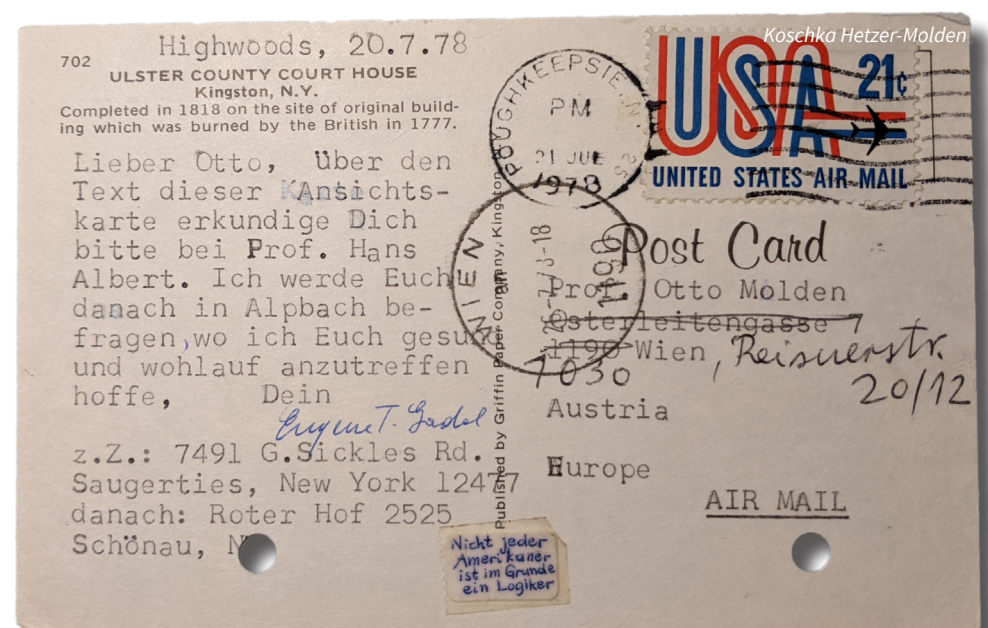 Koschka Hetzer-Molden
Highwoods, 20.7.78
702
ULSTER COUNTY COURT HOUSE
Kingston, N.Y.
Completed in 1818 on the site of original build-
ing which was burned by the British in 1777.
Lieber Otto, über den
Text dieser Ansichts-
karte erkundige Dich
bitte bei Prof. Hans
Albert. Ich werde Euch
danach in Alpbach be-
fragen,wo ich Euch gesund
und wohlauf anzutreffen
hoffe, Dein
Eugene T. Gadol
z.Z.: 7491 G.Sickles Rd.
Saugerties, New York 12477
danach: Roter Hof 2525
Schönau,
Published by Griffin Paper Company, Kingston
Nicht jeder
Amerikaner
ist im Grunde
ein Logiker
POUGHKEEPSIE, N.Y.
PM
21 JUL
1978
USA 21c
UNITED STATES AIR MAIL
WIEN
1190
Post Card
Prof. Otto Molden
Osterleitengasse 7
1190 Wien, Reisnerstr.
1030 20/12
Austria
Europe
AIR MAIL